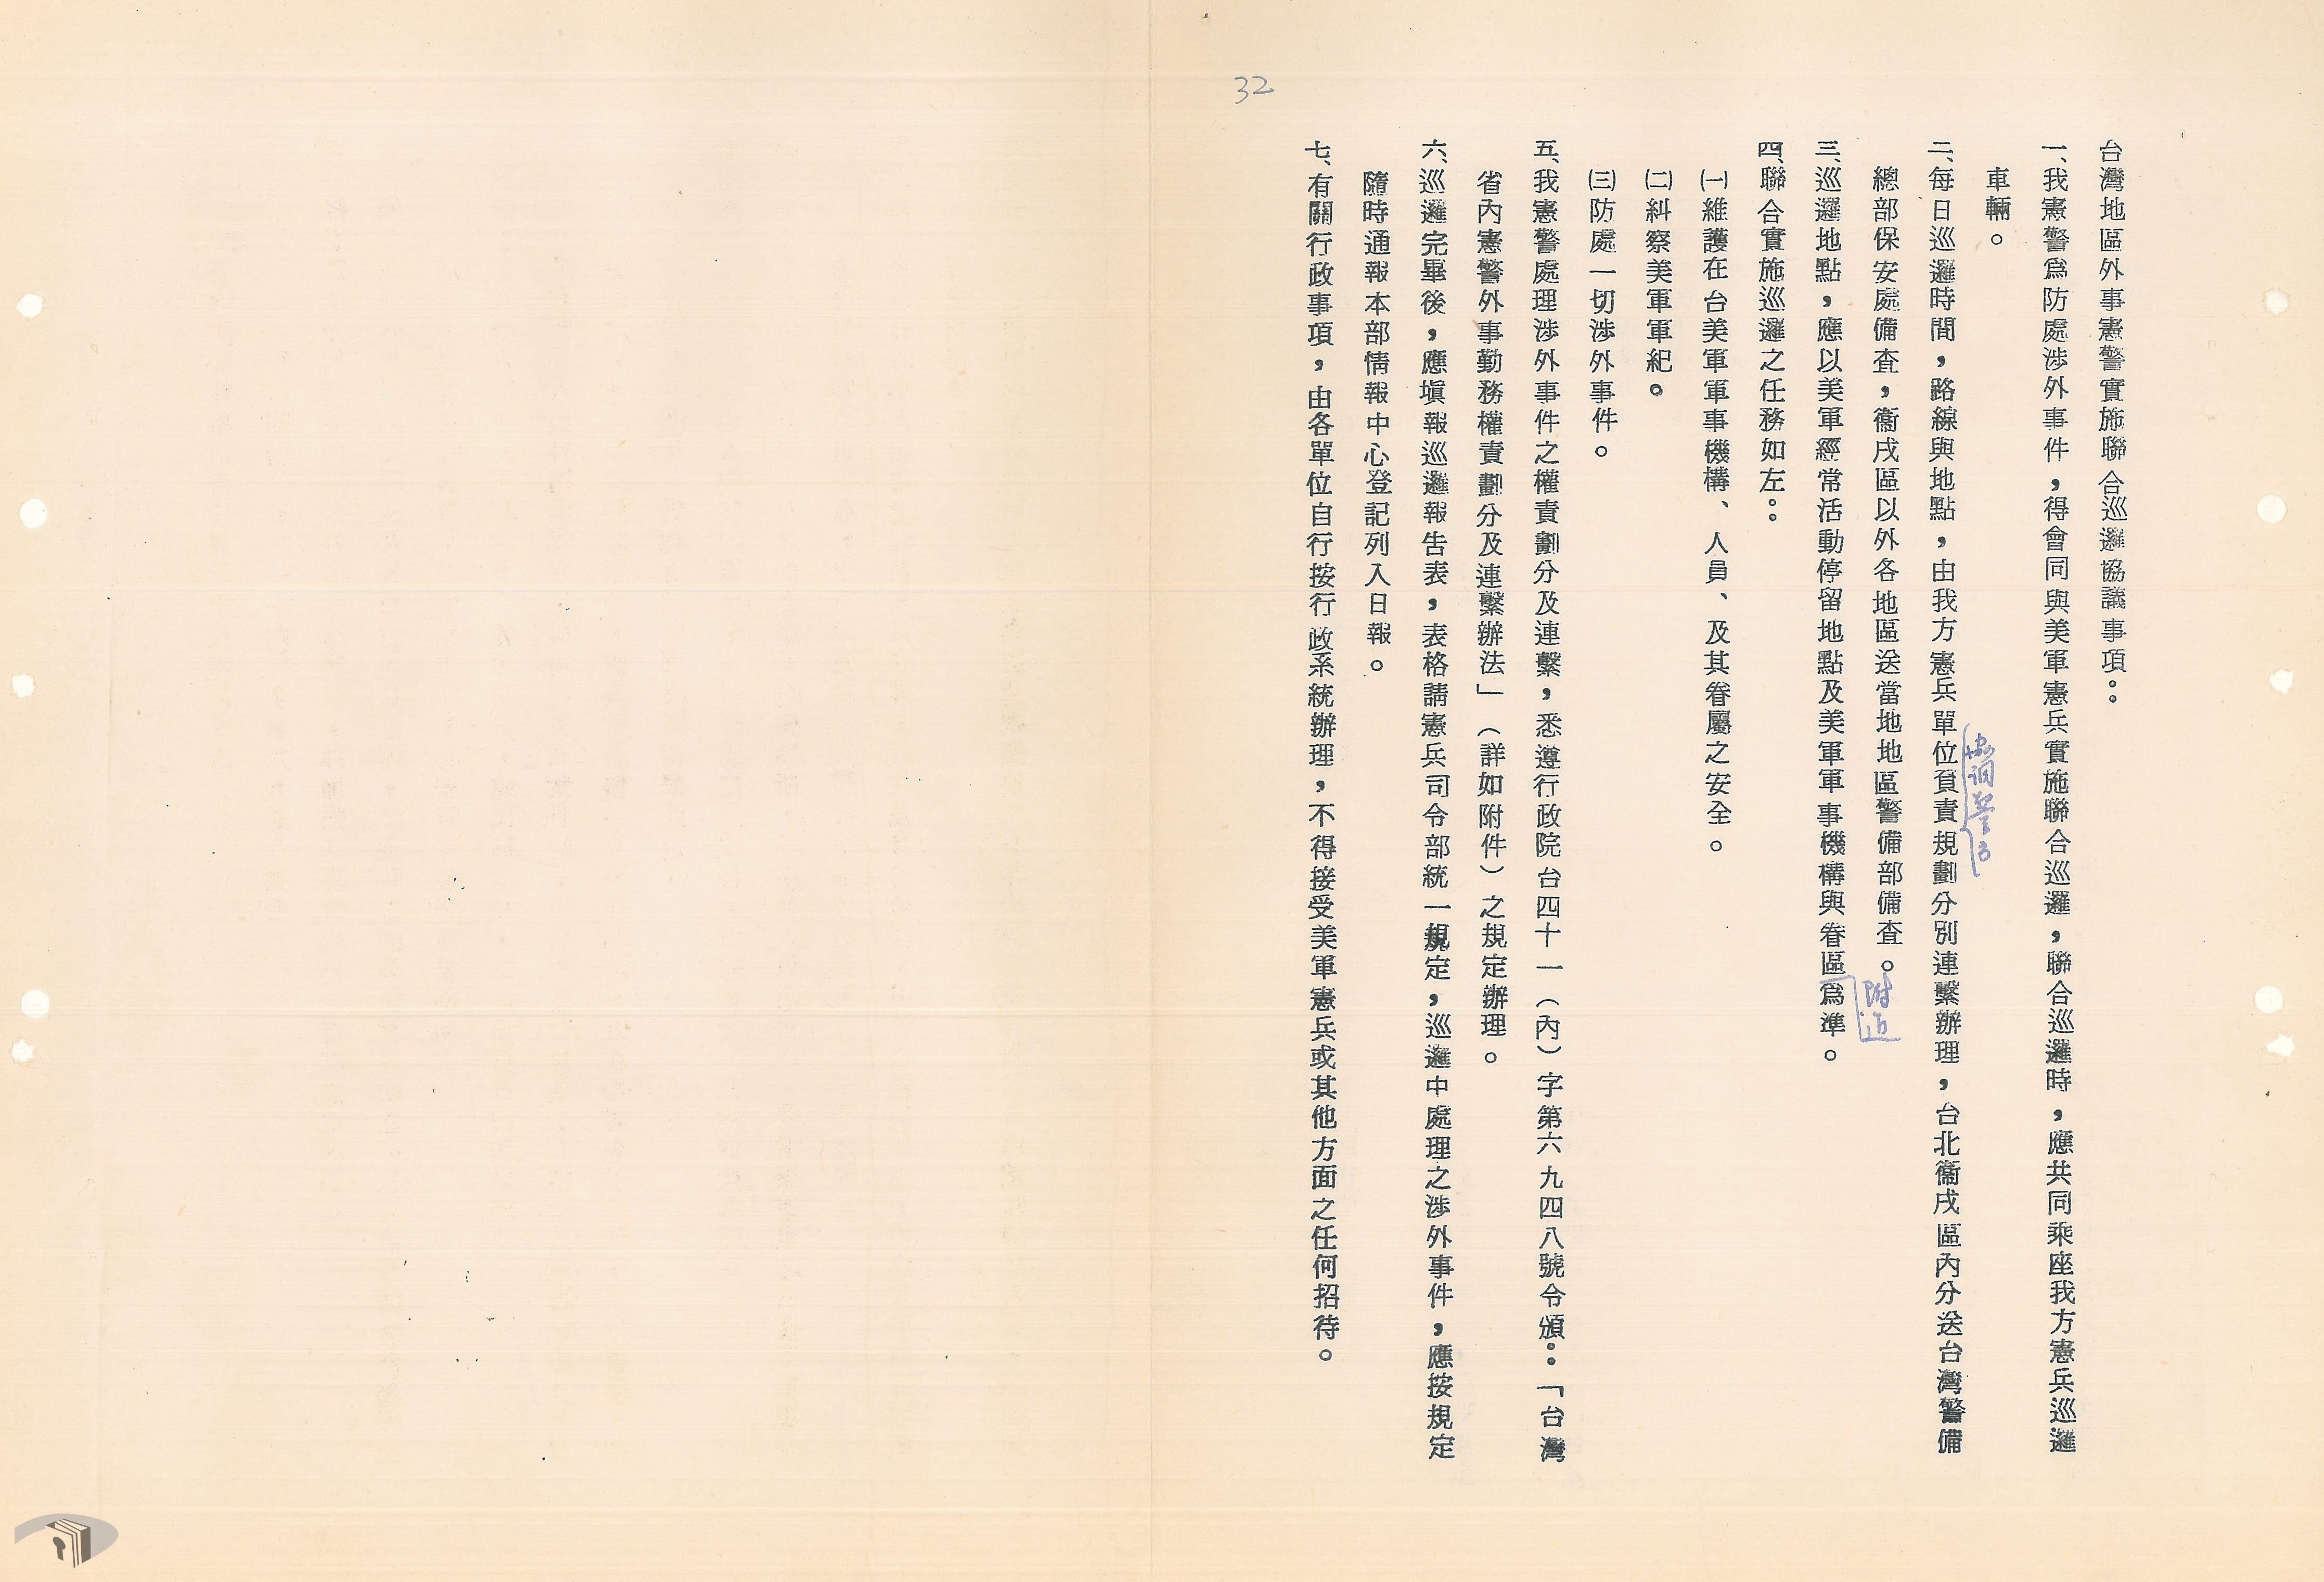 32
台灣地區外事憲警實施聯合巡邏協議事項：
一、我憲警爲防處涉外事件，得會同與美軍憲兵實施聯合巡邏，聯合巡邏時，應共同乘座我方憲兵巡邏
車輛。
協調警方
二、每日巡邏時間，路線與地點，由我方憲兵單位負責規劃分別連繫辦理，台北衞戍區內分送台灣警備
總部保安處備查，衞戍區以外各地區送當地地區警備部備查。
附近
三、巡邏地點，應以美軍經常活動停留地點及美軍軍事機構與眷區爲準。
四、聯合實施巡邏之任務如左：
㈠維護在台美軍軍事機構、人員、及其眷屬之安全。
㈡糾察美軍軍紀。
㈢防處一切涉外事件。
五、我憲警處理涉外事件之權責劃分及連繫，悉遵行政院台四十一（內）字第六九四八號令頒：「台灣
省內憲警外事勤務權責劃分及連繫辦法」（詳如附件）之規定辦理。
六、巡邏完畢後，應塡報巡邏報告表，表格請憲兵司令部統一規定，巡邏中處理之涉外事件，應按規定
隨時通報本部情報中心登記列入日報。
七、有關行政事項，由各單位自行按行政系統辦理，不得接受美軍憲兵或其他方面之任何招待。